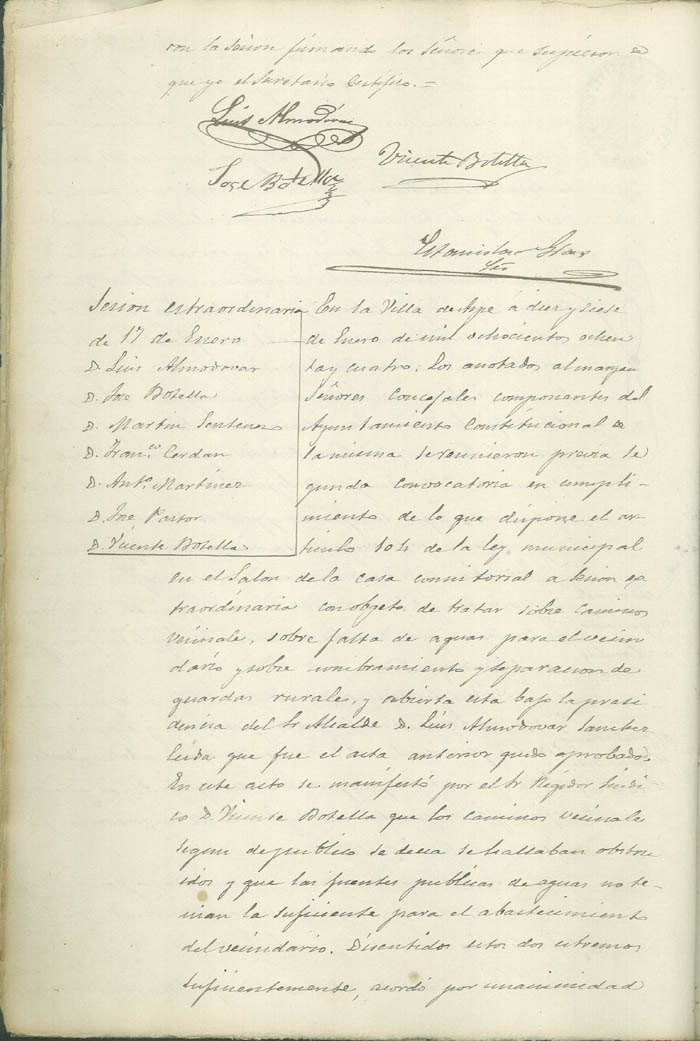 con la sesion firmando los Señores que supieron de
que yo el Secretario Certifico.=
Luis Almodovar
Vicente Botella
José Botella
Estanislao
Srio
Sesion estraordinaria
de 17 de Enero
D. Luis Almodovar
D. Jose Botella
D. Martin Sentenes
D. Franco. Cerdan
D. Anto. Martinez
D. José Pastor
D. Vicente Botella
En la Villa de Aspe á diez y siete
de Enero de mil ochocientos ochen
ta y cuatro; Los anotados al margen
Señores Concejales componentes del
Ayuntamiento Constitucional de
la misma se reunieron previa se
gunda convocatoria en cumpli-
miento de lo que dispone el ar-
ticulo 104 de la ley municipal
en el Salon de la casa consitorial a sesion es
traordinaria con objeto de tratar sobre caminos
vecinales, sobre falta de aguas para el vecin
dario y sobre nombramiento y separacion de
guardas rurales, y abierta esta bajo la presi
dencia del Sr Alcalde D. Luis Almodovar Sanchez
leida que fue el acta anterior quedo aprobada.
En este acto se manifestó por el Sr Regidor Sindi
co D. Vicente Botella que los caminos vecinales
segun de publico se decia se hallaban obstru
idos y que las fuentes publicas de aguas no te
nian la suficiente para el abastecimiento
del vecindario. Discutidos estos dos estremos
suficientemente, acordó por unanimidad